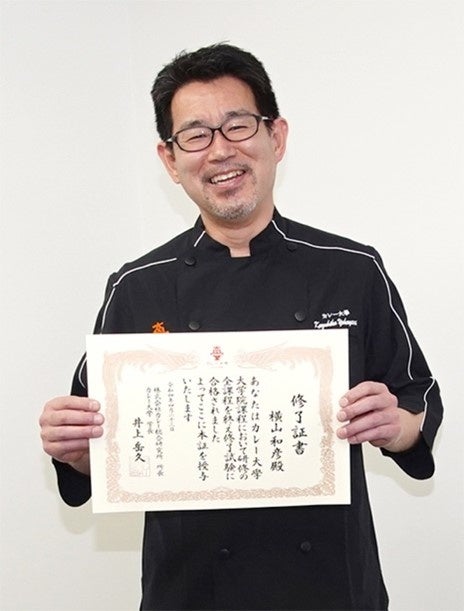 カレー大學
Kazuhiko Yokoyama
修了証書
横山和彦殿
あなたはカレー大学
大学院課程において研修の
全課程を終え修了試験に
合格されました
よってここに本証を授与
いたします
令和四年
株式会社カレー総合研究所 所長
カレー大学 学長
井上岳久